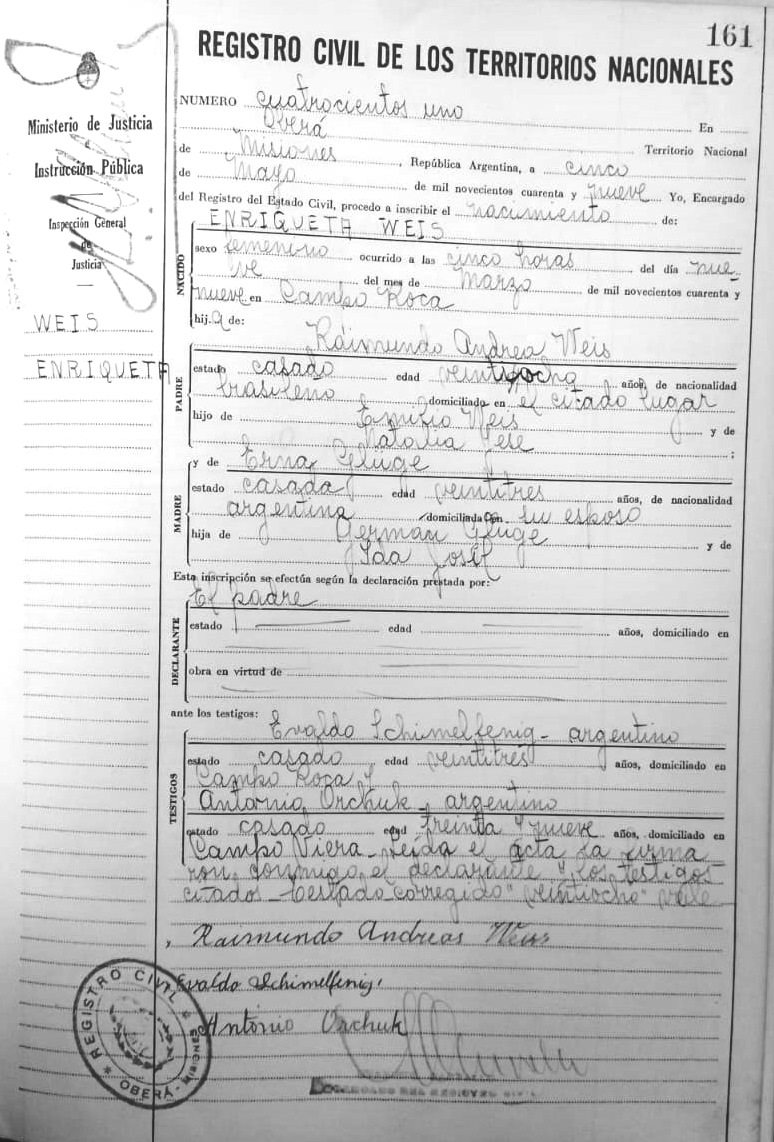 161
REGISTRO CIVIL DE LOS TERRITORIOS NACIONALES
Ministerio de Justicia
e
Instrucción Pública
Inspección General
de
Justicia
WEIS
ENRIQUETA
NUMERO cuatrocientos uno En
Oberá Territorio Nacional
de Misiones, República Argentina, a cinco
de Mayo de mil novecientos cuarenta y nueve Yo, Encargado
del Registro del Estado Civil, procedo a inscribir el nacimiento de:
ENRIQUETA WEIS
NACIDO
sexo femenino ocurrido a las cinco horas del día nue-
ve del mes de Marzo de mil novecientos cuarenta y
nueve en Campo Roca
hij a de:
Raimundo Andrea Weis
PADRE
estado casado edad veintiocho años, de nacionalidad
brasileño domiciliado en el citado lugar
hijo de Emilio Weis y de
Natalia ;
MADRE
y de Erna Gluge
estado casada edad veintitres años, de nacionalidad
argentina domiciliada con su esposo
hija de German Gluge y de
Ida José
Esta inscripción se efectúa según la declaración prestada por:
El padre
DECLARANTE
estado edad años, domiciliado en
obra en virtud de
ante los testigos:
Evaldo Schimelfenig - argentino
TESTIGOS
estado casado edad veintitrés años, domiciliado en
Campo Roca y
Antonio Orchuk - argentino
estado casado edad treinta y nueve años, domiciliado en
Campo Viera - Leída el acta la firma
ron conmigo el declarante y los testigos
citados - corregido "veintiocho" vale
Raimundo Andreas Weis
Evaldo Schimelfenig
Antonio Orchuk
REGISTRO CIVIL * OBERÁ - MISIONES *
ENCARGADO DEL REGISTRO CIVIL